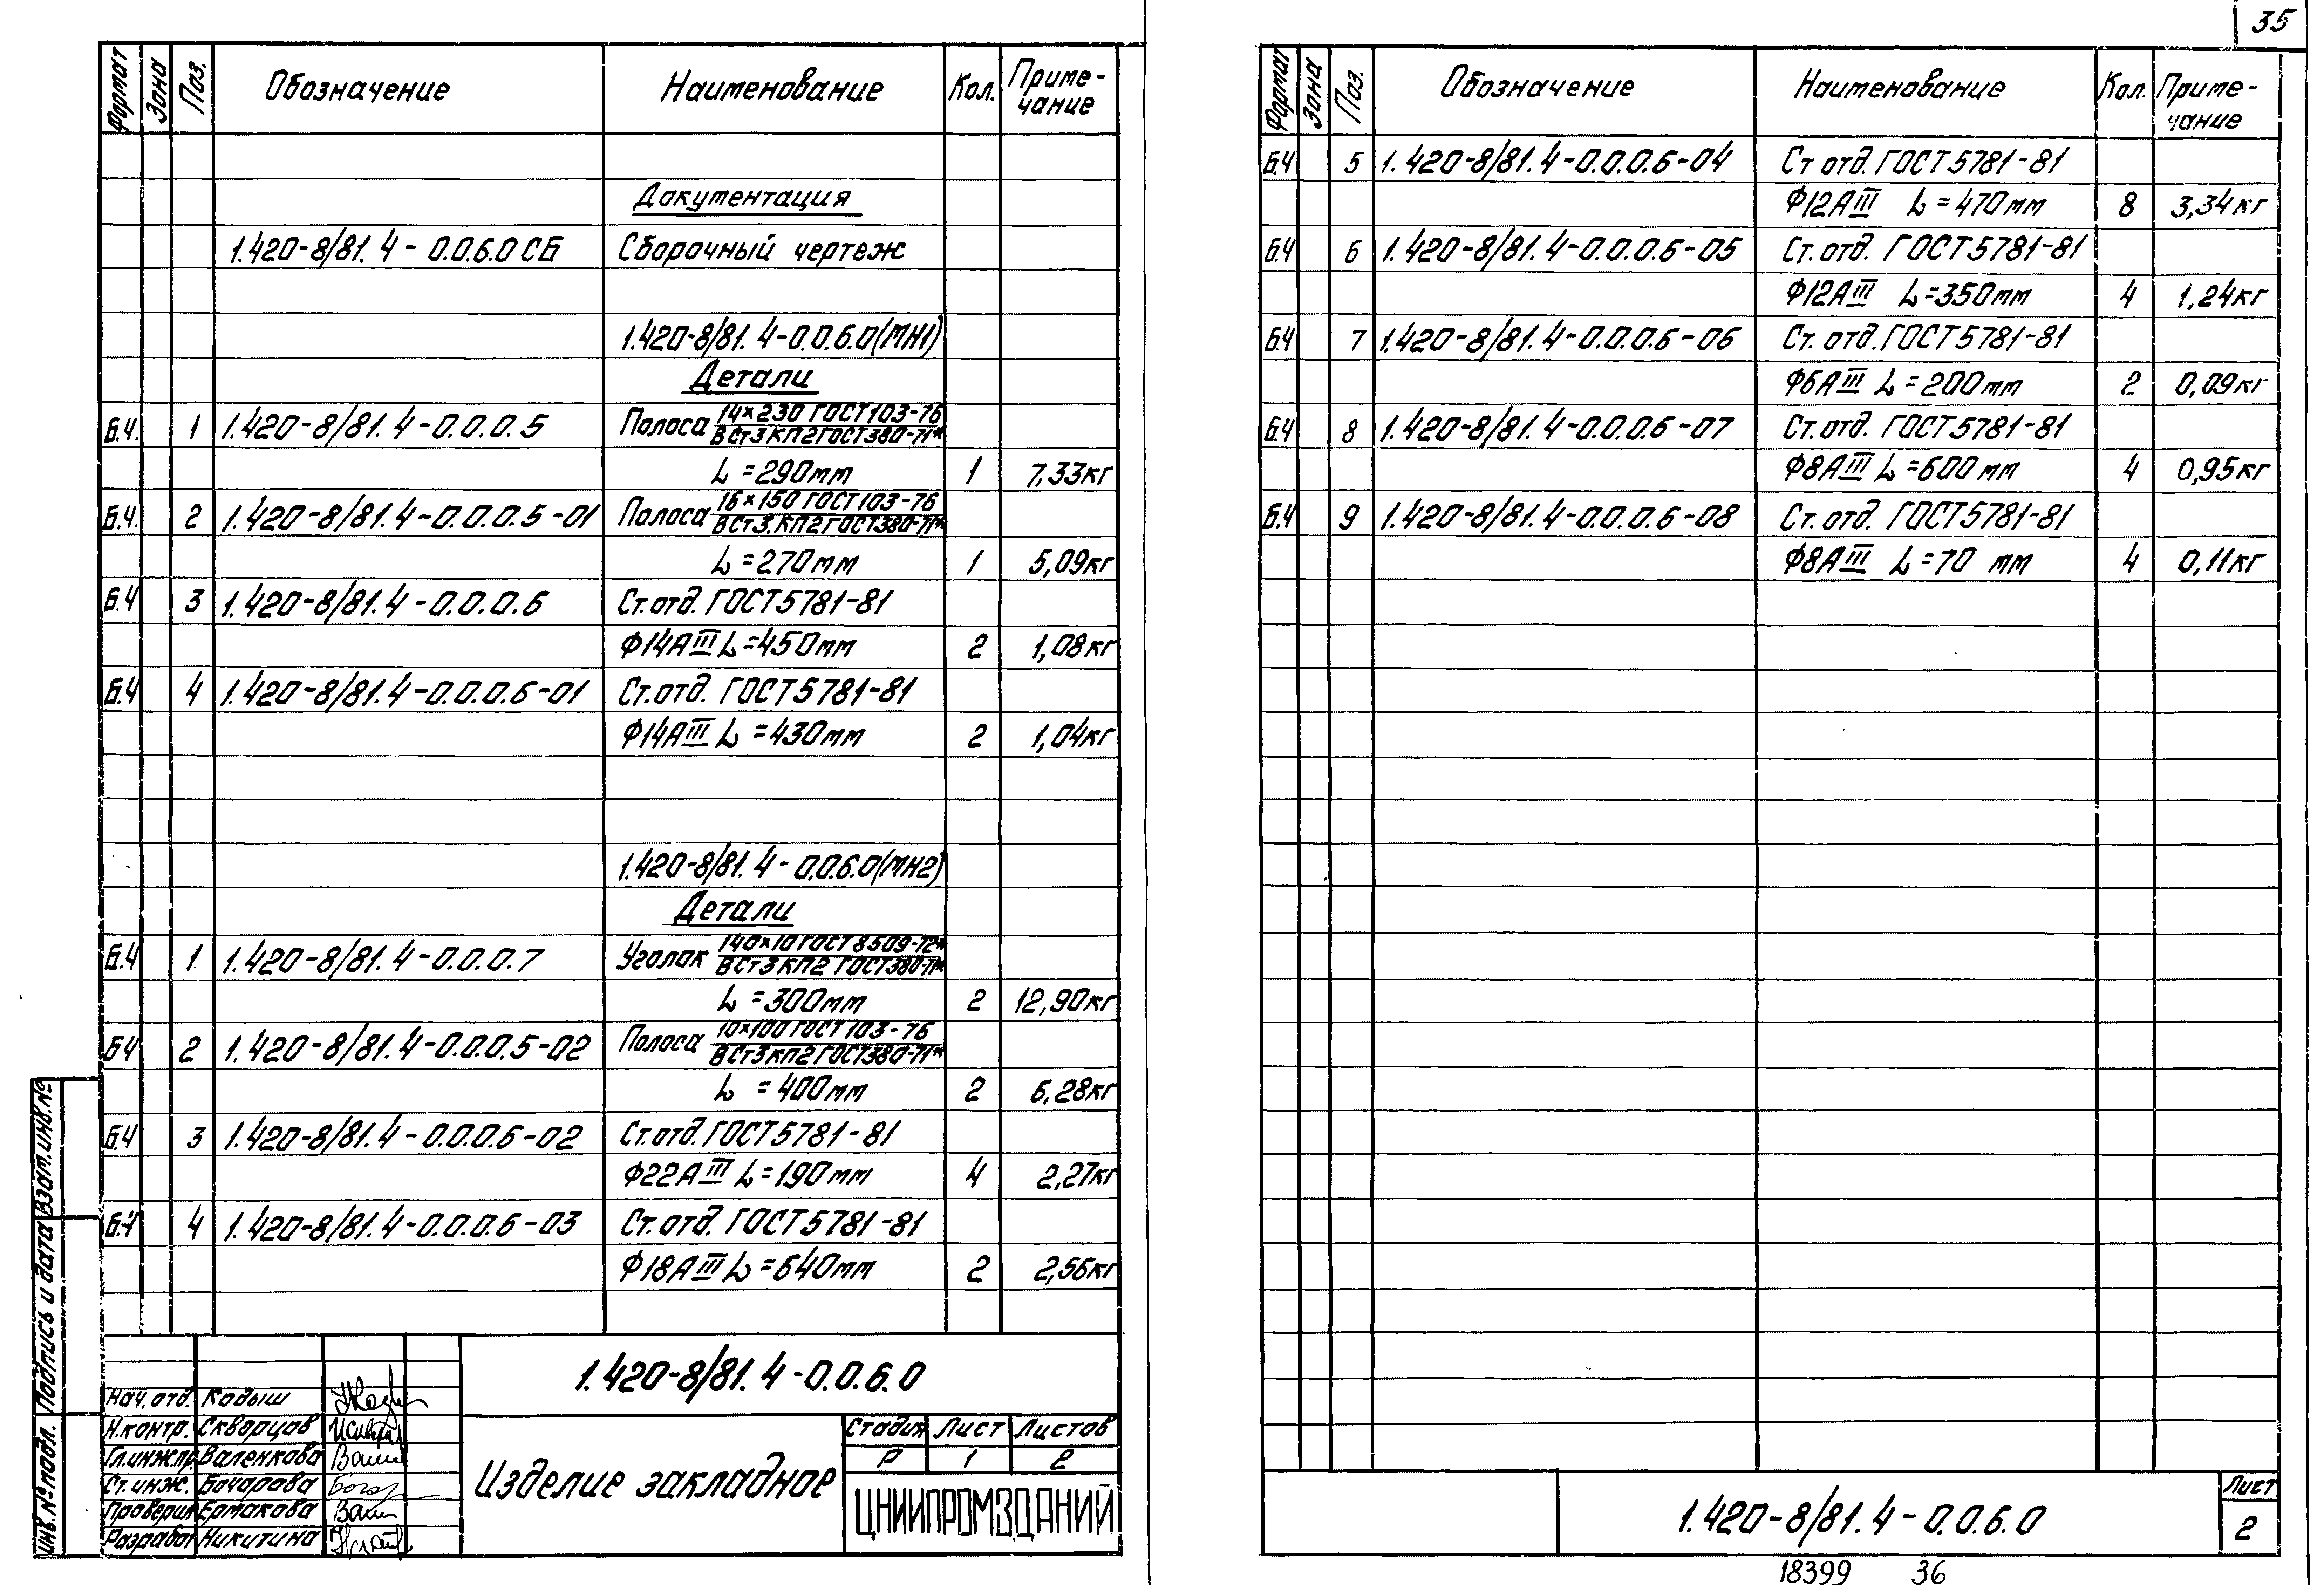 35
Формат Зона Поз. Обозначение Наименование Кол. Приме-
чание
Документация
1.420-8/81.4-0.0.6.0СБ Сборочный чертеж
1.420-8/81.4-0.0.6.0(МН1)
Детали
Б.Ч. 1 1.420-8/81.4-0.0.0.5 Полоса 14×230 ГОСТ103-76
ВСт3КП2ГОСТ380-71*
L=290мм 1 7,33кг
Б.Ч. 2 1.420-8/81.4-0.0.0.5-01 Полоса 16×150 ГОСТ103-76
ВСт3.КП2ГОСТ380-71*
L=270мм 1 5,09кг
Б.Ч 3 1.420-8/81.4-0.0.0.6 Ст.отд. ГОСТ5781-81
Ф14АIII L=450мм 2 1,08кг
Б.Ч 4 1.420-8/81.4-0.0.0.6-01 Ст.отд. ГОСТ5781-81
Ф14АIII L=430мм 2 1,04кг
1.420-8/81.4-0.0.6.0(МН2)
Детали
Б.Ч 1 1.420-8/81.4-0.0.0.7 Уголок 140×10 ГОСТ8509-72*
ВСт3КП2 ГОСТ380-71*
L=300мм 2 12,90кг
БЧ 2 1.420-8/81.4-0.0.0.5-02 Полоса 10×100 ГОСТ103-76
ВСт3КП2ГОСТ380-71*
L=400мм 2 6,28кг
Б.Ч 3 1.420-8/81.4-0.0.0.6-02 Ст.отд. ГОСТ5781-81
Ф22АIII L=190мм 4 2,27кг
Б.Ч 4 1.420-8/81.4-0.0.0.6-03 Ст.отд. ГОСТ5781-81
Ф18АIII L=640мм 2 2,56кг
1.420-8/81.4-0.0.6.0
Нач.отд. Кодыш
Н.контр. Скворцов
Гл.инж.пр. Валенкова
Ст.инж. Бочарова
Проверил Ермакова
Разработ Никитина
Изделие закладное
Стадия Лист Листов
Р 1 2
ЦНИИПРОМЗДАНИЙ
Инв.№подл. Подпись и дата Взам.инв.№
Формат Зона Поз. Обозначение Наименование Кол. Приме-
чание
Б.Ч 5 1.420-8/81.4-0.0.0.6-04 Ст отд. ГОСТ5781-81
Ф12АIII L=470мм 8 3,34кг
Б.Ч 6 1.420-8/81.4-0.0.0.6-05 Ст.отд. ГОСТ5781-81
Ф12АIII L=350мм 4 1,24кг
Б.Ч 7 1.420-8/81.4-0.0.0.6-06 Ст.отд.ГОСТ5781-81
Ф6АIII L=200мм 2 0,09кг
Б.Ч 8 1.420-8/81.4-0.0.0.6-07 Ст.отд. ГОСТ5781-81
Ф8АIII L=600мм 4 0,95кг
Б.Ч 9 1.420-8/81.4-0.0.0.6-08 Ст.отд. ГОСТ5781-81
Ф8АIII L=70 мм 4 0,11кг
1.420-8/81.4-0.0.6.0
Лист
2
18399 36